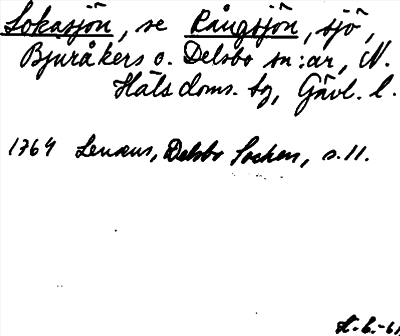 Lokasjön, se Rångsjön, sjö,
Bjuråkers o. Delsbo sn:ar, N.
Häls doms. tg, Gävl. l.
1764 Lenæus, Delsbo Sochen, s. 11.
H.-b.-61